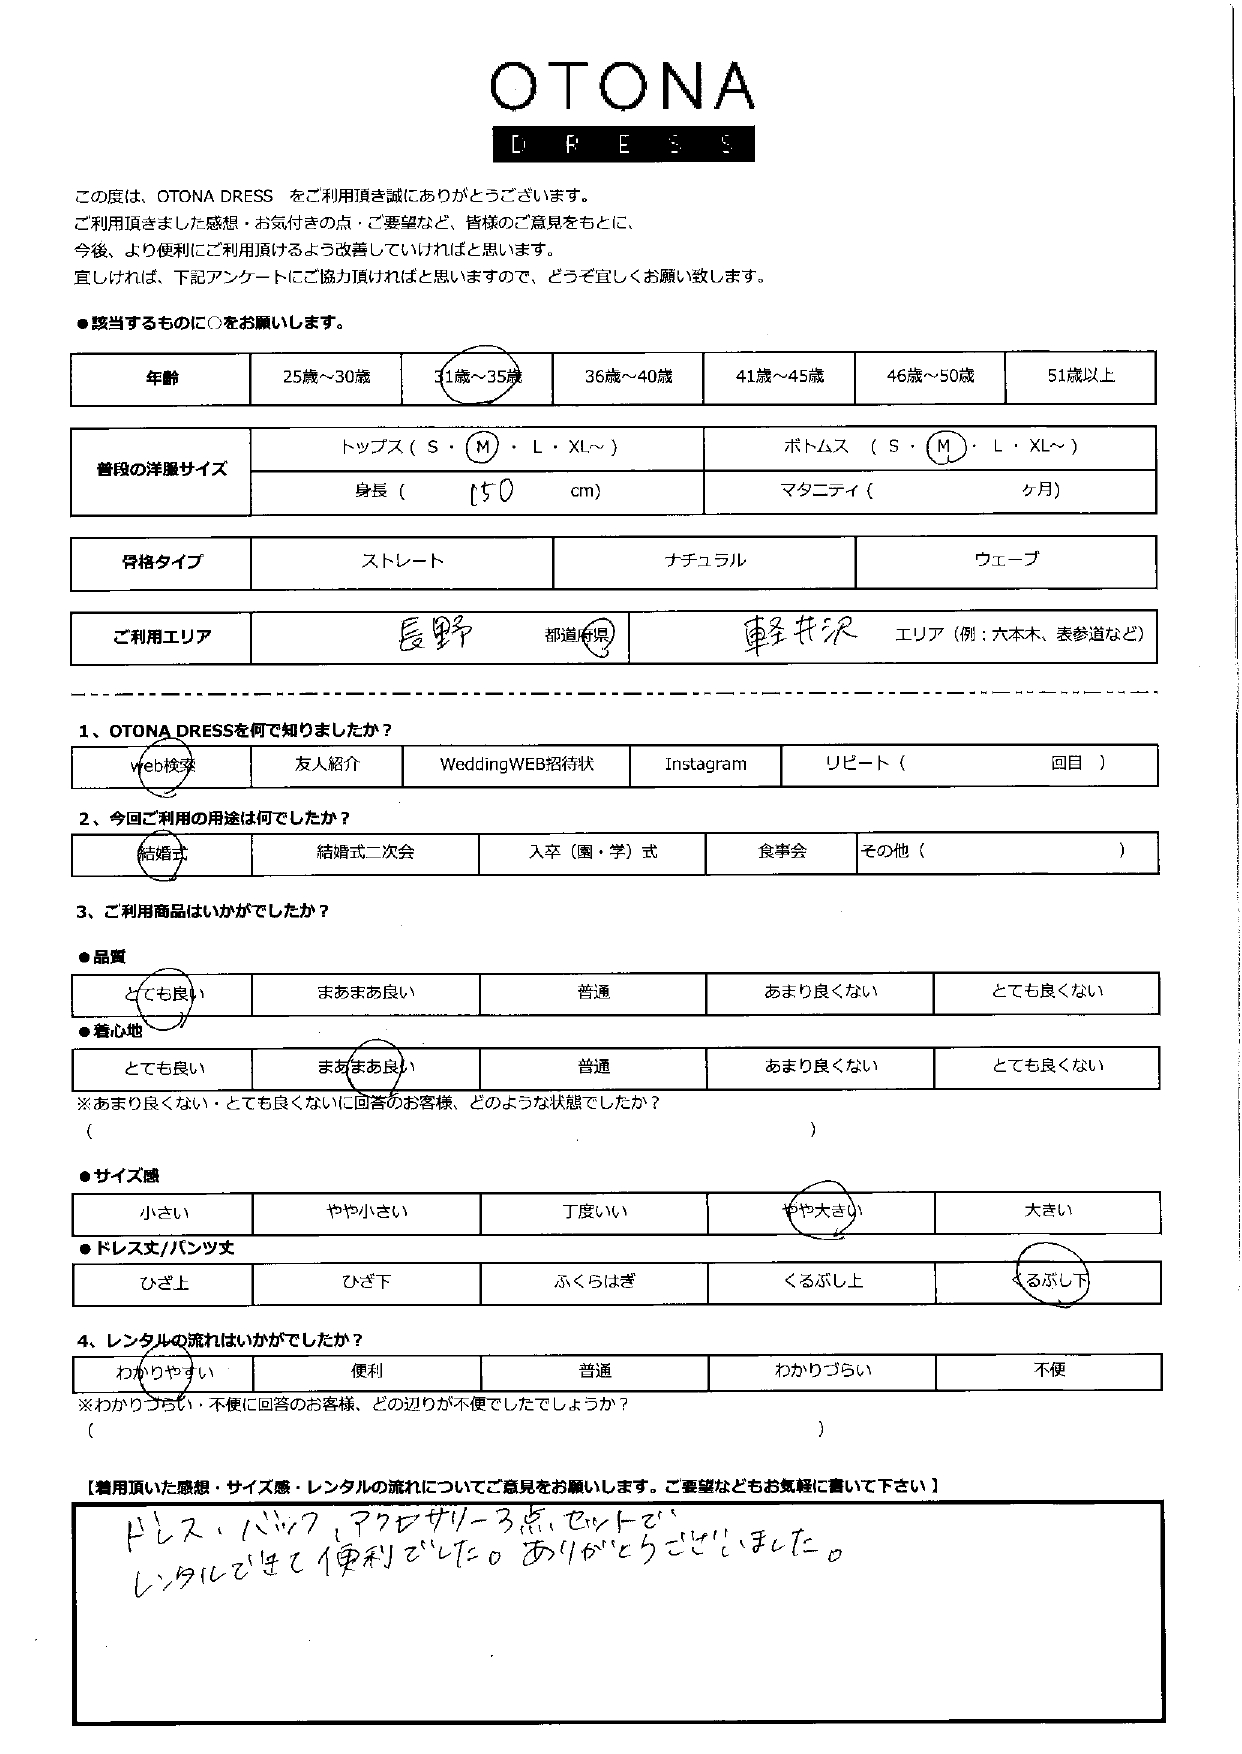 OTONA
DRESS
この度は、OTONA DRESS をご利用頂き誠にありがとうございます。
ご利用頂きました感想・お気付きの点・ご要望など、皆様のご意見をもとに、
今後、より便利にご利用頂けるよう改善していければと思います。
宜しければ、下記アンケートにご協力頂ければと思いますので、どうぞ宜しくお願い致します。
●該当するものに○をお願いします。
年齢 25歳～30歳 31歳～35歳 36歳～40歳 41歳～45歳 46歳～50歳 51歳以上
普段の洋服サイズ トップス ( S ・ M ・ L ・ XL～ ) ボトムス ( S ・ M ・ L ・ XL～ )
身長 ( 150 cm) マタニティ ( ケ月)
骨格タイプ ストレート ナチュラル ウェーブ
ご利用エリア 長野 都道府県 軽井沢 エリア（例：六本木、表参道など）
1、OTONA DRESSを何で知りましたか？
web検索 友人紹介 WeddingWEB招待状 Instagram リピート（ 回目 ）
2、今回ご利用の用途は何でしたか？
結婚式 結婚式二次会 入卒（園・学）式 食事会 その他（ ）
3、ご利用商品はいかがでしたか？
●品質
とても良い まあまあ良い 普通 あまり良くない とても良くない
●着心地
とても良い まあまあ良い 普通 あまり良くない とても良くない
※あまり良くない・とても良くないに回答のお客様、どのような状態でしたか？
（ ）
●サイズ感
小さい やや小さい 丁度いい やや大きい 大きい
●ドレス丈/パンツ丈
ひざ上 ひざ下 ふくらはぎ くるぶし上 くるぶし下
4、レンタルの流れはいかがでしたか？
わかりやすい 便利 普通 わかりづらい 不便
※わかりづらい・不便に回答のお客様、どの辺りが不便でしたでしょうか？
（ ）
【着用頂いた感想・サイズ感・レンタルの流れについてご意見をお願いします。ご要望などもお気軽に書いて下さい】
ドレス、バック、アクセサリー3点、セットで
レンタルできて便利でした。ありがとうございました。